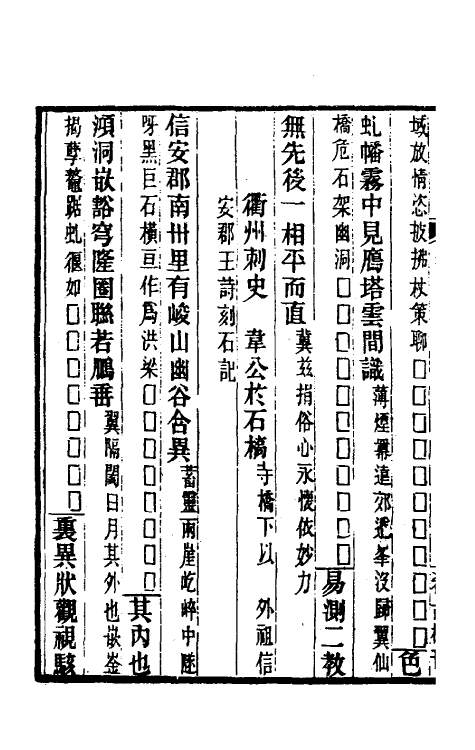 域放情恣披拂杖策聊□□□□□□□□□□□色
虬幡霧中見鴈塔雲間識薄煙羃遠郊遙峯沒歸翼仙
橋危石架幽洞□□□□□□□□□□□易測二教
無先後一相平而直冀兹捐俗心永懷依妙力
衢州刺史 韋公於石橋寺橋下以 外祖信
安郡王詩刻石記
信安郡南卅里有峻山幽谷含異蓄靈兩崖屹崪中
呀黑巨石橫亘作爲洪梁□□□□□□□□其內也
澒洞嵌豁穹隆圈聮若鵬垂翼隔閡日月其外也嵌崟
揭孽鼇踞虬偃如□□□□□□□□裏異狀觀視駭